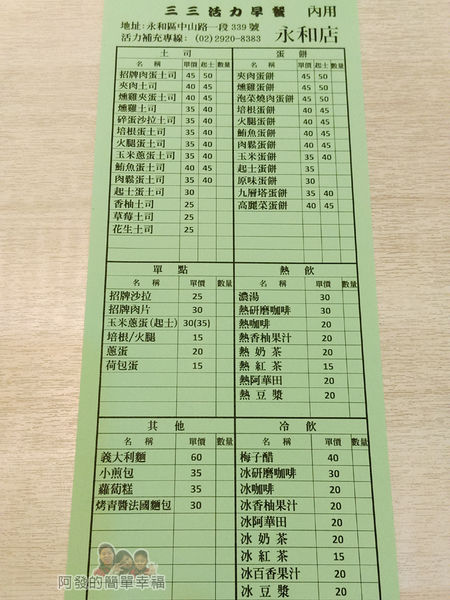 三三活力早餐 內用
地址: 永和區中山路一段339號
活力補充專線: (02)2920-8383 永和店
土司
名稱 單價 起士 數量
招牌肉蛋土司 45 50
夾肉土司 40 45
燻雞夾蛋土司 40 45
燻雞土司 35 40
碎蛋沙拉土司 35 40
培根蛋土司 35 40
火腿蛋土司 35 40
玉米蔥蛋土司 35 40
鮪魚蛋土司 40 45
肉鬆蛋土司 35 40
起士蛋土司 30
香柚土司 25
草莓土司 25
花生土司 25
蛋餅
名稱 單價 起士 數量
夾肉蛋餅 45 50
燻雞蛋餅 40 45
泡菜燒肉蛋餅 45 50
培根蛋餅 40 45
火腿蛋餅 40 45
鮪魚蛋餅 40 45
肉鬆蛋餅 40 45
玉米蛋餅 35 40
起士蛋餅 35
原味蛋餅 30
九層塔蛋餅 35 40
高麗菜蛋餅 40 45
單點
名稱 單價 數量
招牌沙拉 25
招牌肉片 30
玉米蔥蛋(起士) 30(35)
培根/火腿 15
蔥蛋 20
荷包蛋 15
熱飲
名稱 單價 數量
濃湯 30
熱研磨咖啡 30
熱咖啡 20
熱香柚果汁 20
熱奶茶 20
熱紅茶 15
熱阿華田 20
熱豆漿 20
其他
名稱 單價 數量
義大利麵 60
小煎包 35
蘿蔔糕 35
烤青醬法國麵包 30
冷飲
名稱 單價 數量
梅子醋 40
冰研磨咖啡 30
冰咖啡 20
冰香柚果汁 20
冰阿華田 20
冰奶茶 20
冰紅茶 15
冰百香果汁 20
冰豆漿 20
阿發的簡單幸福